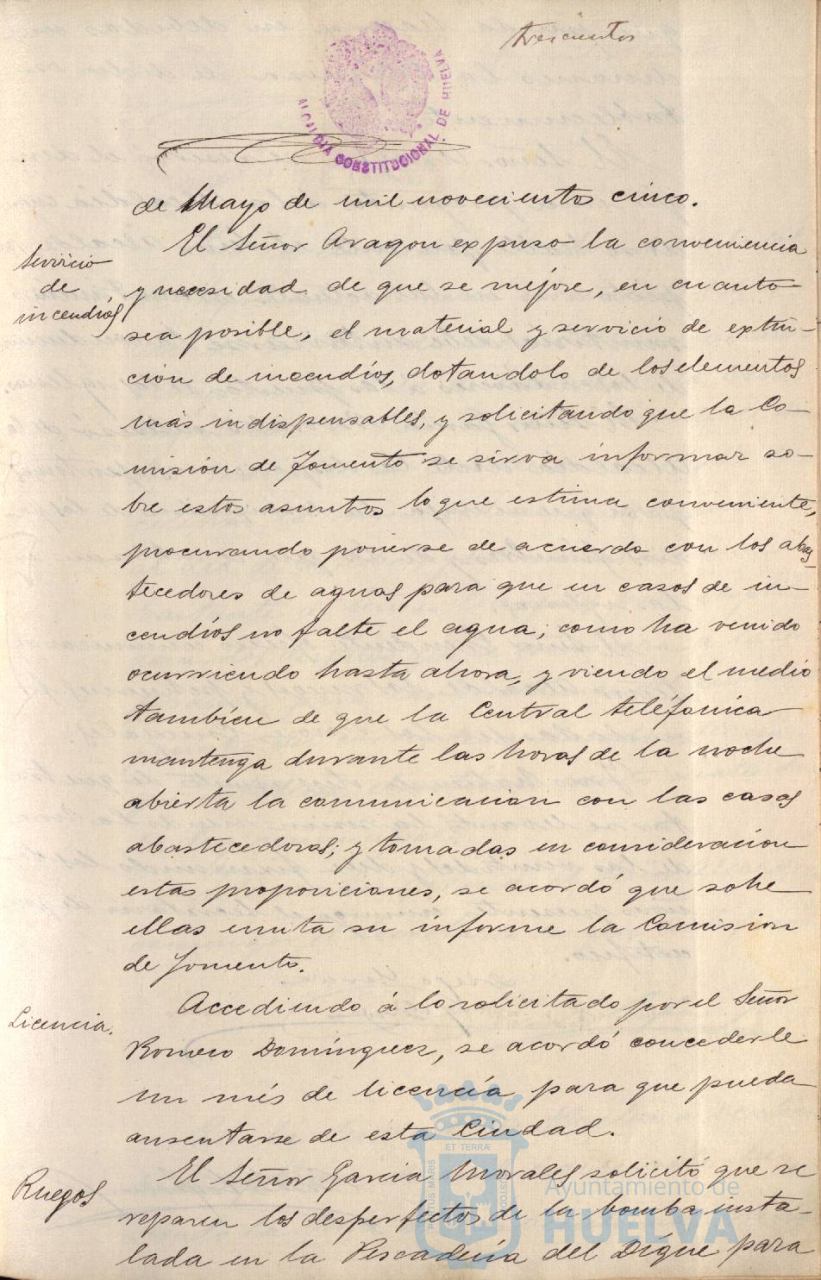 trescientos
ALCALDÍA CONSTITUCIONAL DE HUELVA
de Mayo de mil novecientos cinco.
Servicio
de
incendios
El Señor Aragon expuso la conveniencia
y necesidad de que se mejore, en cuanto
sea posible, el material y servicio de extin-
ción de incendíos, dotandolo de los elementos
más indispensables, y solicitando que la Co-
misión de Fomento se sirva informar so-
bre estos asuntos lo que estima conveniente,
procurando ponerse de acuerdo con los abas-
tecedores de aguas para que en casos de in-
cendíos no falte el agua; como ha venido
ocurriendo hasta ahora, y viendo el medio
tambien de que la Central teléfonica
mantenga durante las horas de la noche
abierta la comunicacion con las casas
abastecedoras; y tomadas en consideracion
estas proposiciones, se acordó que sobre
ellas emita su informe la Comision
de Fomento.
Licencia.
Accediendo á lo solicitado por el Señor
Romero Domínguez, se acordó concederle
un més de licencía para que pueda
ausentarse de esta Ciudad.
Ruegos
El Señor Garcia Morales solicitó que se
reparen los desperfectos de la bomba insta-
lada en la Pescadería del Dique para
ET TERRA
Ayuntamiento de
HUELVA